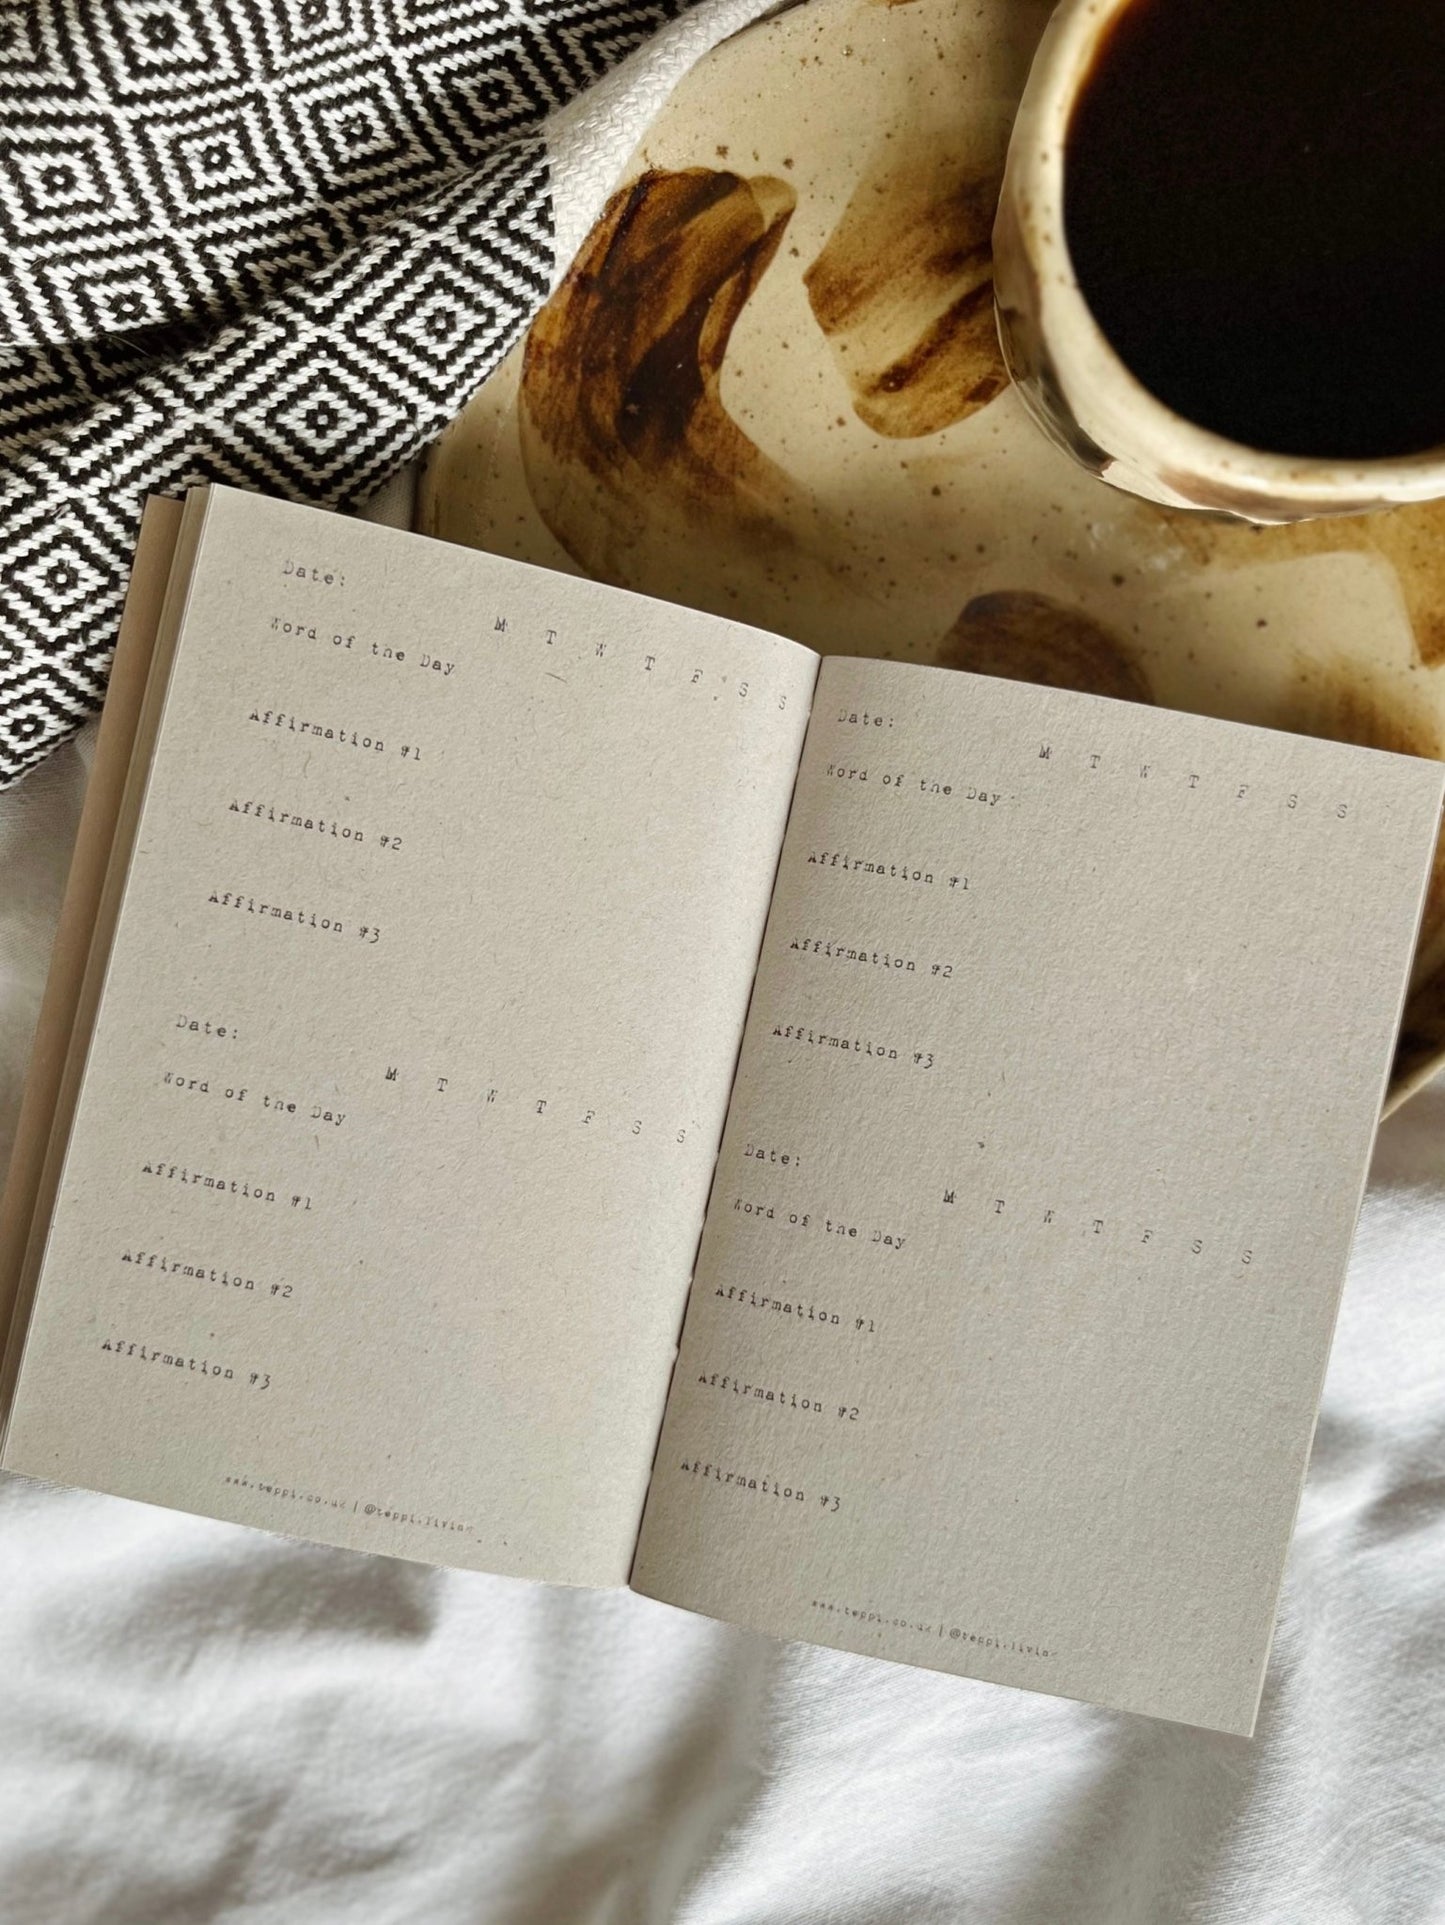 Date:
M T W T F S S
Word of the Day
Affirmation #1
Affirmation #2
Affirmation #3
Date:
M T W T F S S
Word of the Day
Affirmation #1
Affirmation #2
Affirmation #3
www.teppi.co.uk | @teppi.living
Date:
M T W T F S S
Word of the Day
Affirmation #1
Affirmation #2
Affirmation #3
Date:
M T W T F S S
Word of the Day
Affirmation #1
Affirmation #2
Affirmation #3
www.teppi.co.uk | @teppi.living